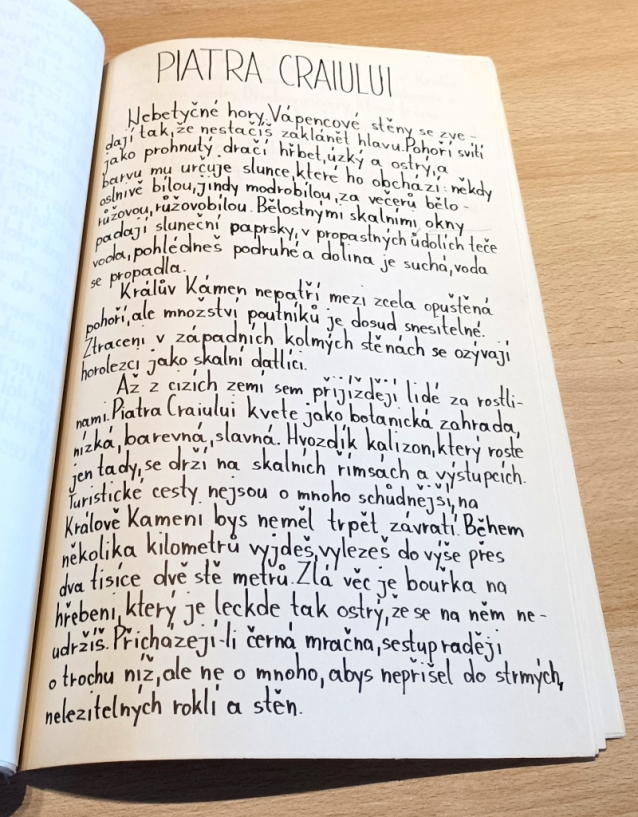 PIATRA CRAIULUI
Nebetyčné hory. Vápencové stěny se zve-
dají tak, že nestačíš zaklánět hlavu. Pohoří svítí
jako prohnutý dračí hřbet, úzký a ostrý, a
barvu mu určuje slunce, které ho obchází: někdy
oslnivě bílou, jindy modrobílou, za večerů bělo-
růžovou, růžovobílou. Bělostnými skalními okny
padají sluneční paprsky, v propastných údolích teče
voda, pohlédneš podruhé a dolina je suchá, voda
se propadla.
Králův Kámen nepatří mezi zcela opuštěná
pohoří, ale množství poutníků je dosud snesitelné.
Ztraceni v západních kolmých stěnách se ozývají
horolezci jako skalní datlíci.
Až z cizích zemí sem přijíždějí lidé za rostli-
nami. Piatra Craiului kvete jako botanická zahrada,
nízká, barevná, slavná. Hvozdík kalizon, který roste
jen tady, se drží na skalních římsách a výstupcích.
Turistické cesty nejsou o mnoho schůdnější, na
Králově Kameni bys neměl trpět závratí. Během
několika kilometrů vyjdeš, vylezeš do výše přes
dva tisíce dvě stě metrů. Zlá věc je bouřka na
hřebeni, který je leckde tak ostrý, že se na něm ne-
udržíš. Přicházejí-li černá mračna, sestup raději
o trochu níž, ale ne o mnoho, abys nepřišel do strmých,
nelezitelných roklí a stěn.